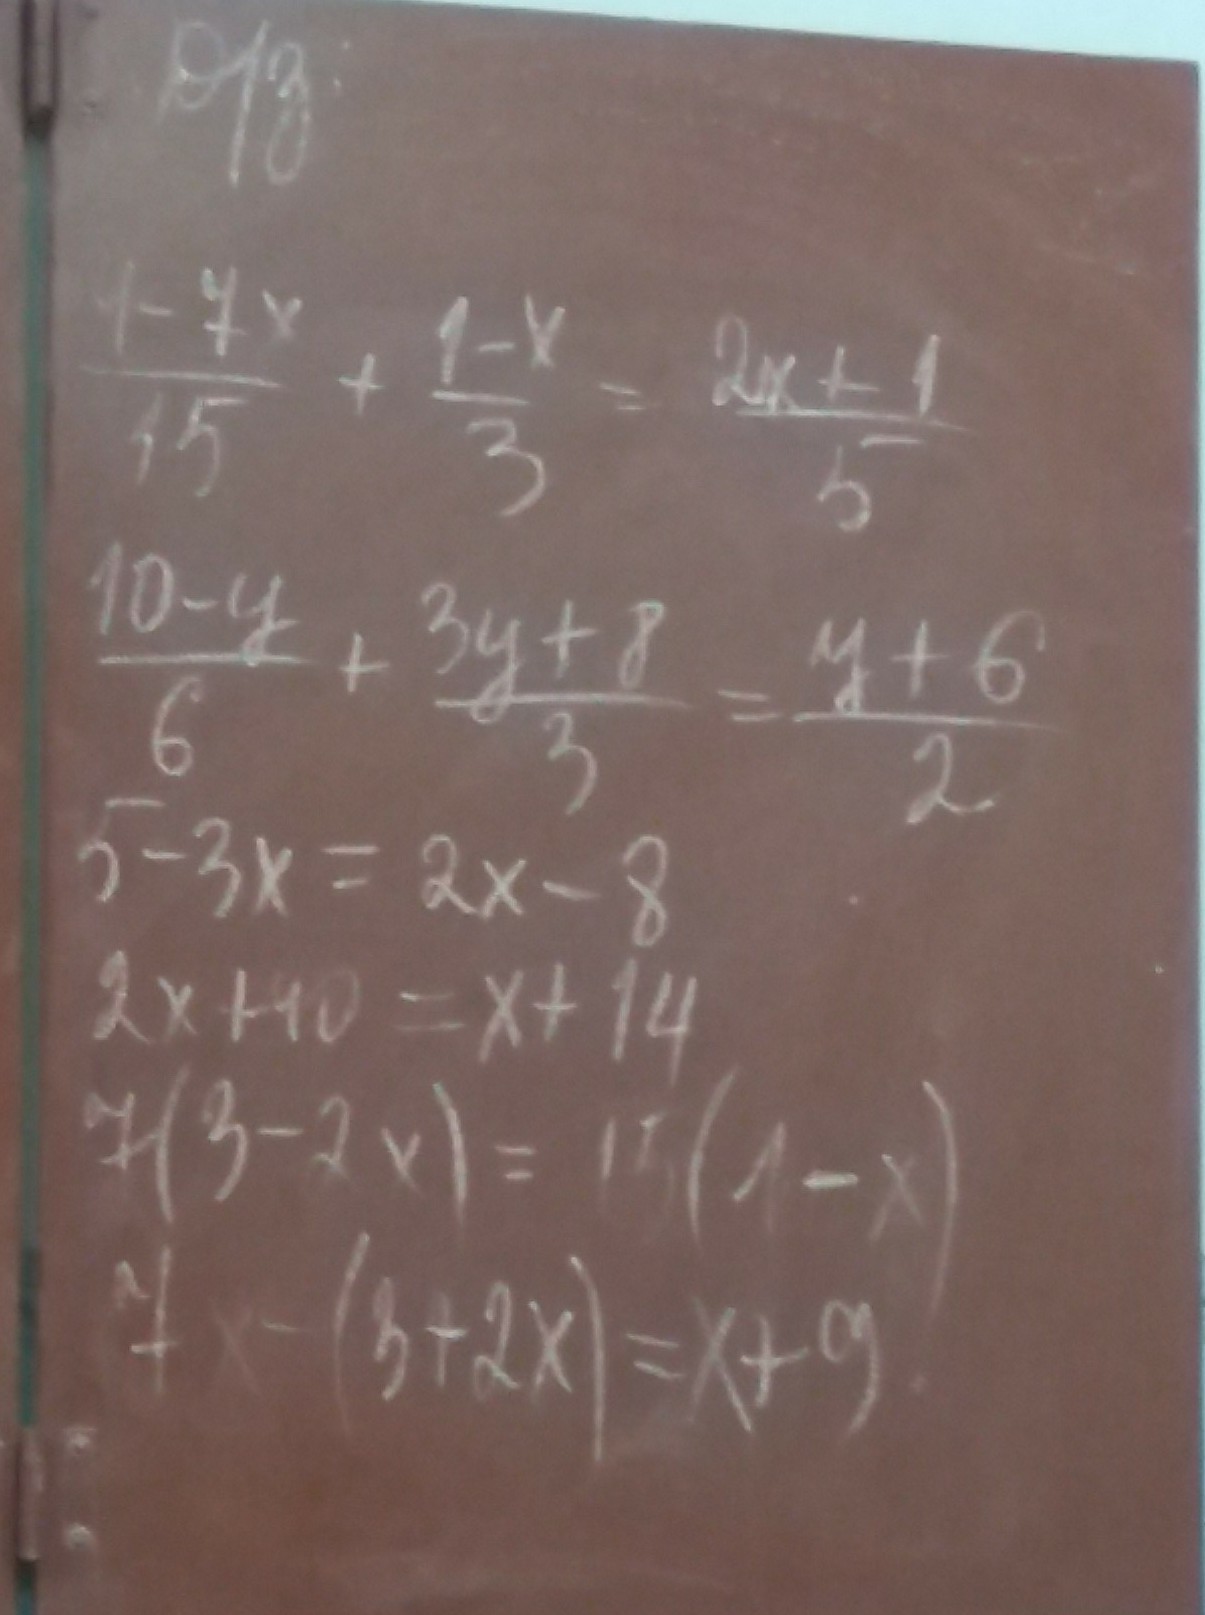 Д/з.
1-7x/15 + 1-x/3 = 2x+1/5
10-y/6 + 3y+8/3 = y+6/2
5-3x = 2x-8
2x+40 = x+14
7(3-2x) = 15(1-x)
7x-(3+2x)=x+9